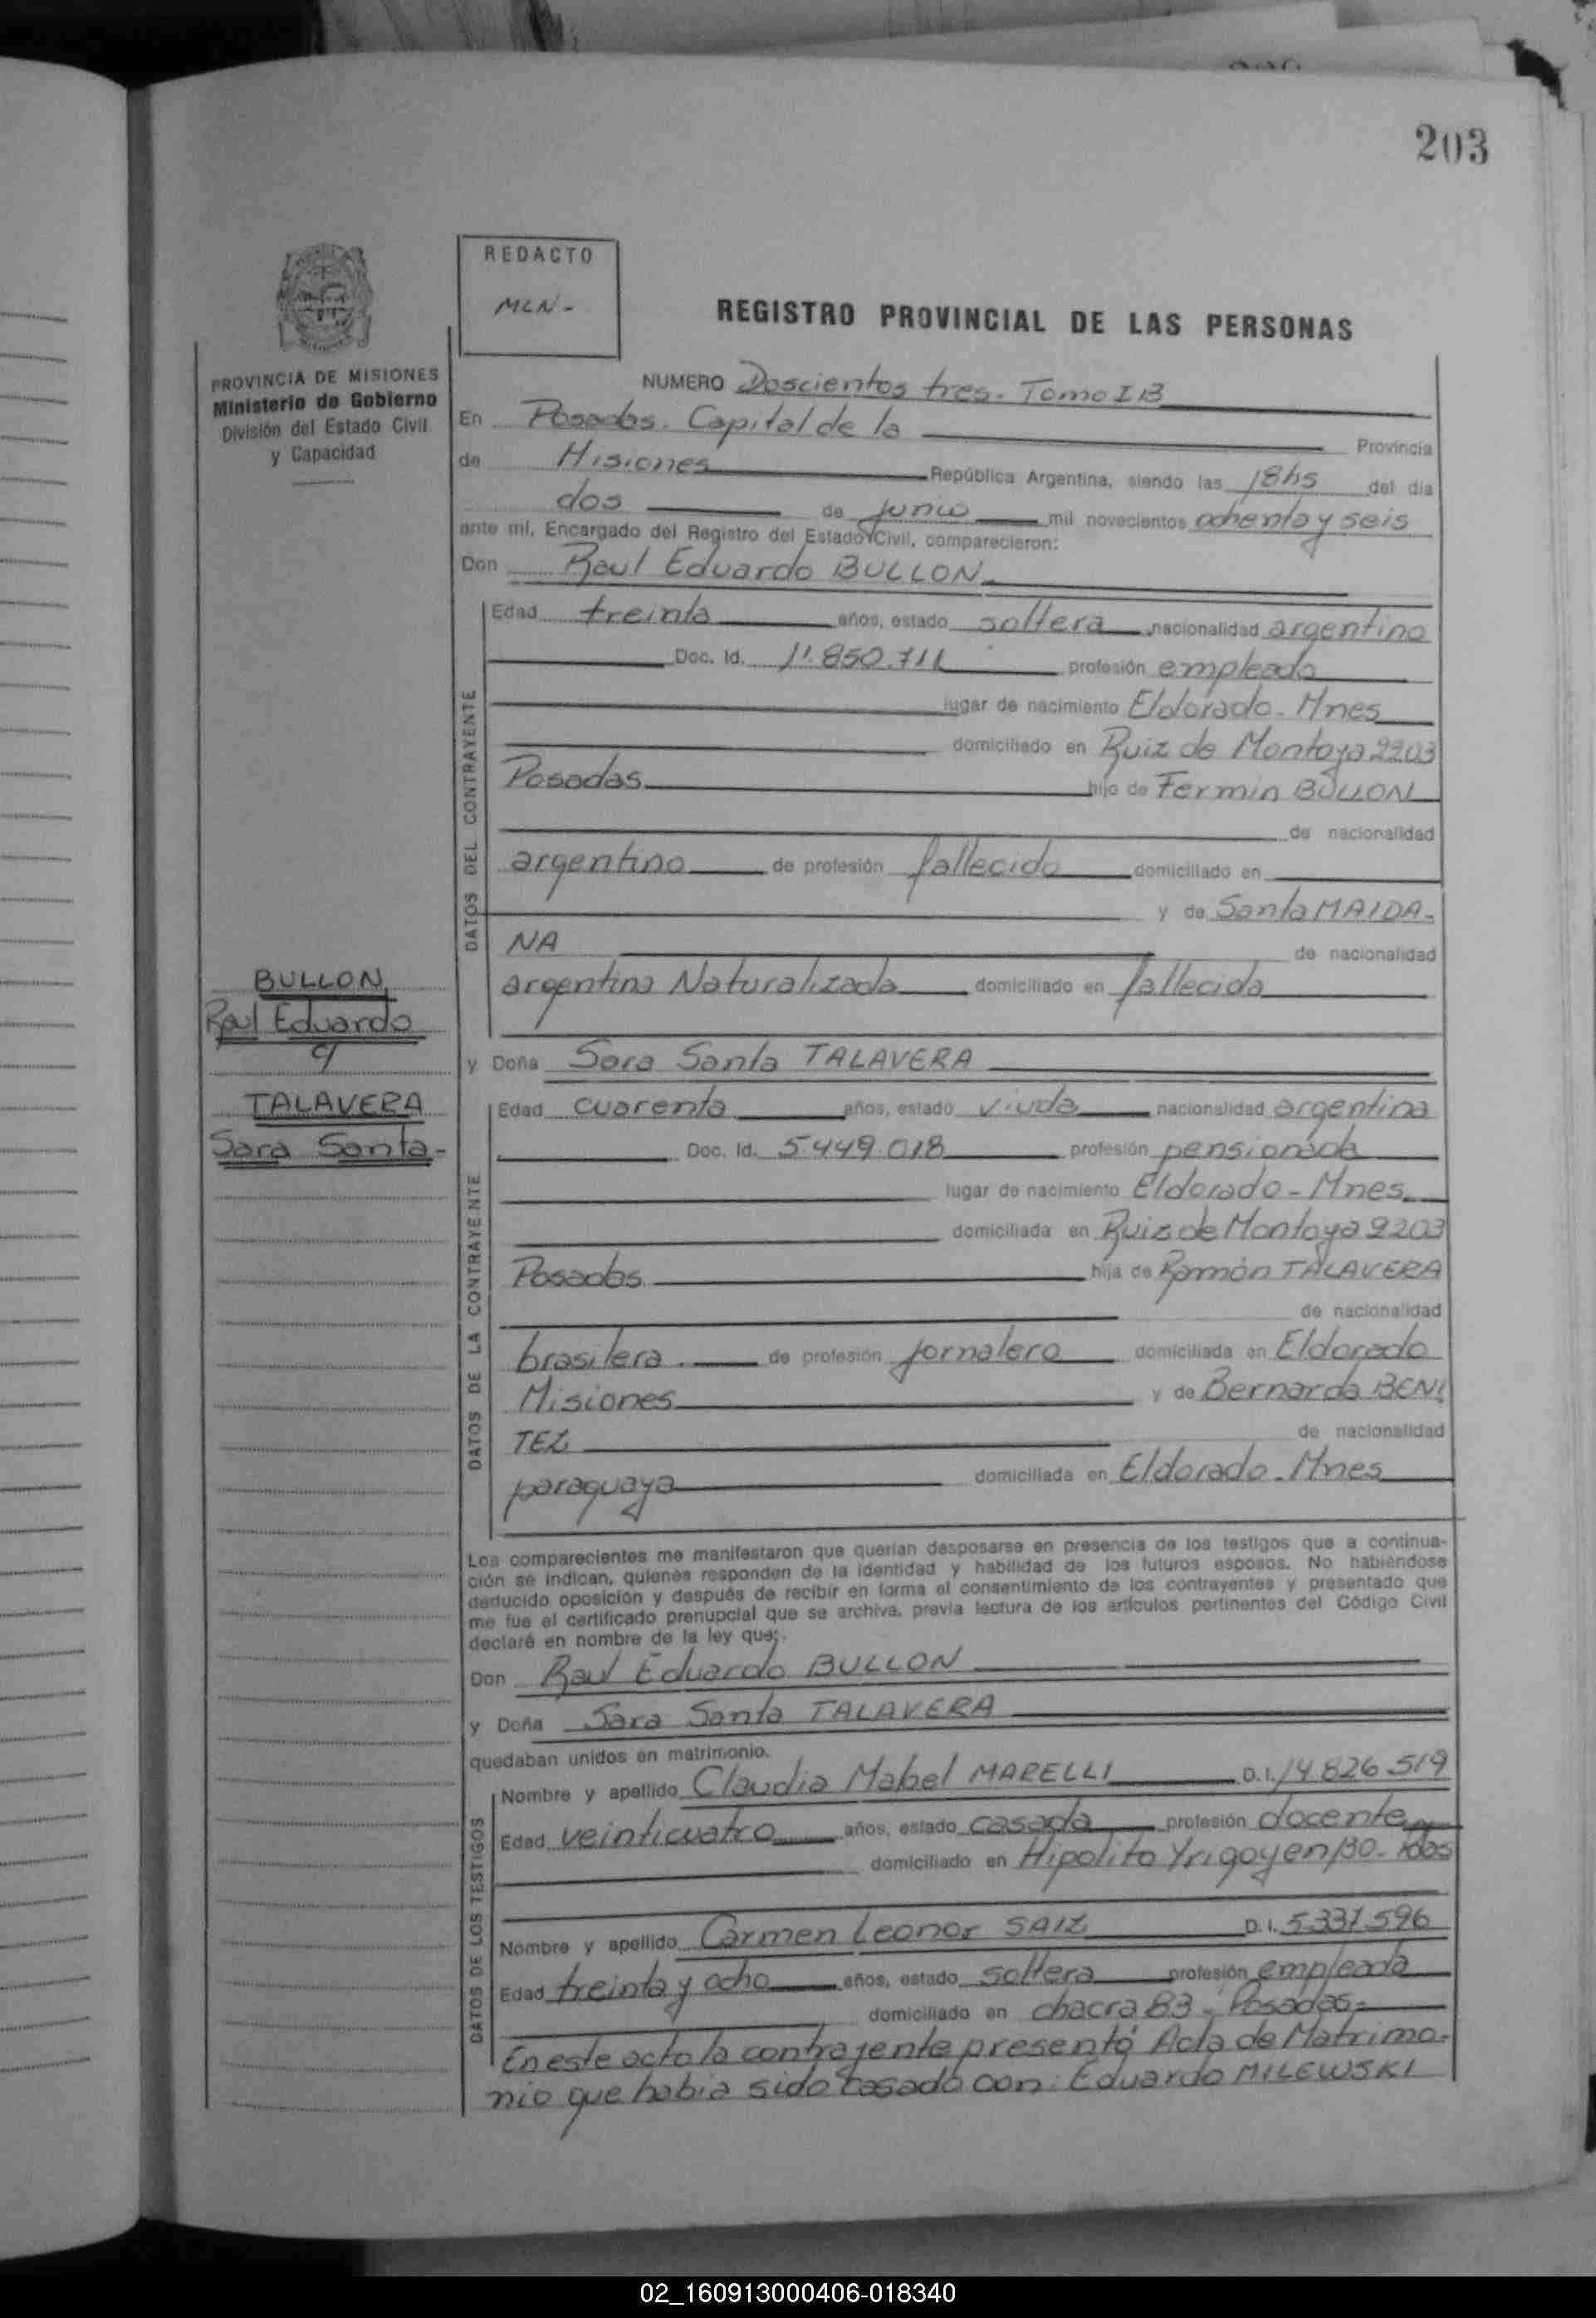 203
REDACTO
MLN-
REGISTRO PROVINCIAL DE LAS PERSONAS
PROVINCIA DE MISIONES
Ministerio de Gobierno
División del Estado Civil
y Capacidad
NUMERO Doscientos tres. Tomo I B
En Posadas. Capital de la Provincia
de Misiones República Argentina, siendo las 18hs del día
dos de junio mil novecientos ochenta y seis
ante mí, Encargado del Registro del Estado Civil, comparecieron:
Don Raul Eduardo BULLON
DATOS DEL CONTRAYENTE
Edad treinta años, estado soltera nacionalidad argentino
Doc. Id. 11.850.711 profesión empleado
lugar de nacimiento Eldorado - Mnes
domiciliado en Ruiz de Montoya 2203
Posadas hijo de Fermin BULLON
de nacionalidad
argentino de profesión fallecido domiciliado en
y de Santa MAIDA-
NA de nacionalidad
argentina Naturalizada domiciliado en fallecida
BULLON
Raul Eduardo
c/
TALAVERA
Sara Santa-
y Doña Sara Santa TALAVERA
DATOS DE LA CONTRAYENTE
Edad cuarenta años, estado viuda nacionalidad argentina
Doc. Id. 5.449.018 profesión pensionada
lugar de nacimiento Eldorado - Mnes.
domiciliada en Ruiz de Montoya 2203
Posadas hija de Ramón TALAVERA
de nacionalidad
brasilera. de profesión jornalero domiciliada en Eldorado
Misiones y de Bernarda BENI
TEZ de nacionalidad
paraguaya domiciliada en Eldorado - Mnes
Los comparecientes me manifestaron que querían desposarse en presencia de los testigos que a continua-
ción se indican, quienes responden de la identidad y habilidad de los futuros esposos. No habiéndose
deducido oposición y después de recibir en forma el consentimiento de los contrayentes y presentado que
me fue el certificado prenupcial que se archiva, previa lectura de los artículos pertinentes del Código Civil
declaré en nombre de la ley que:
Don Raul Eduardo BULLON
y Doña Sara Santa TALAVERA
quedaban unidos en matrimonio.
DATOS DE LOS TESTIGOS
Nombre y apellido Claudia Mabel MARELLI D.I. 14.826.519
Edad veinticuatro años, estado casada profesión docente
domiciliado en Hipolito Yrigoyen 130 - Pdas
Nombre y apellido Carmen Leonor SAIZ D.I. 5.331.596
Edad treinta y ocho años, estado soltera profesión empleada
domiciliado en chacra 83 - Posadas-
En este acto la contrayente presentó Acta de Matrimo-
nio que habia sido casado con: Eduardo MILEWSKI
02_160913000406-018340